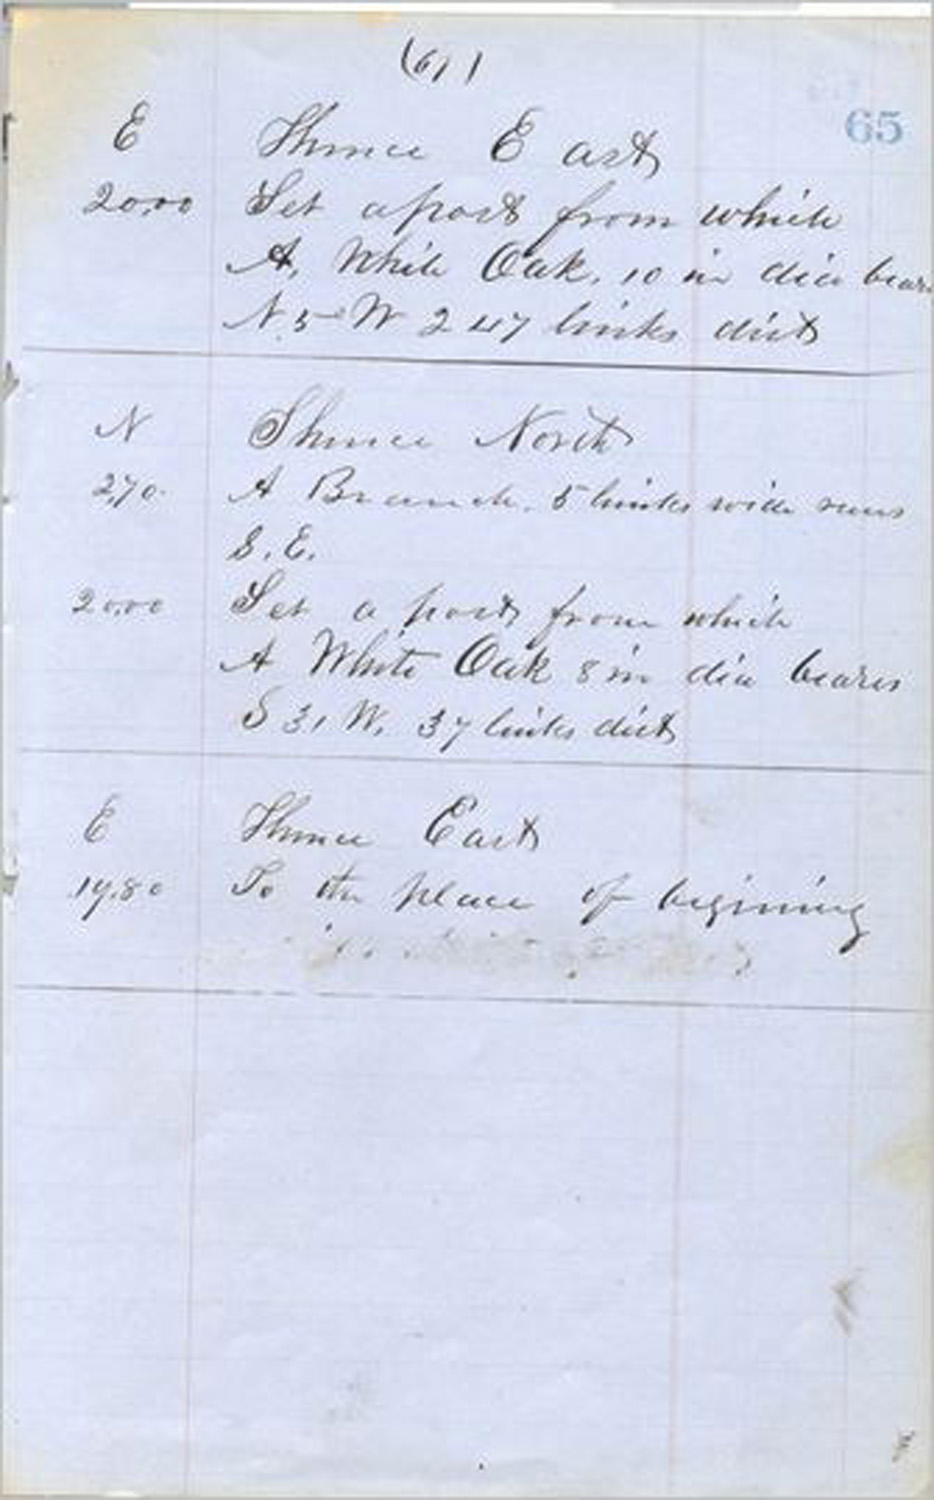 (61)
65
E Thence East
20.00 Set a post from which
A, White Oak, 10 in dia bears
N 5 W 247 links dist
N Thence North
2,70 A Branch, 5 links wide runs
S. E.
20,00 Set a post from which
A White Oak 8 in dia beares
S 31 W, 37 links dist
E Thence East
19.80 To the place of begining